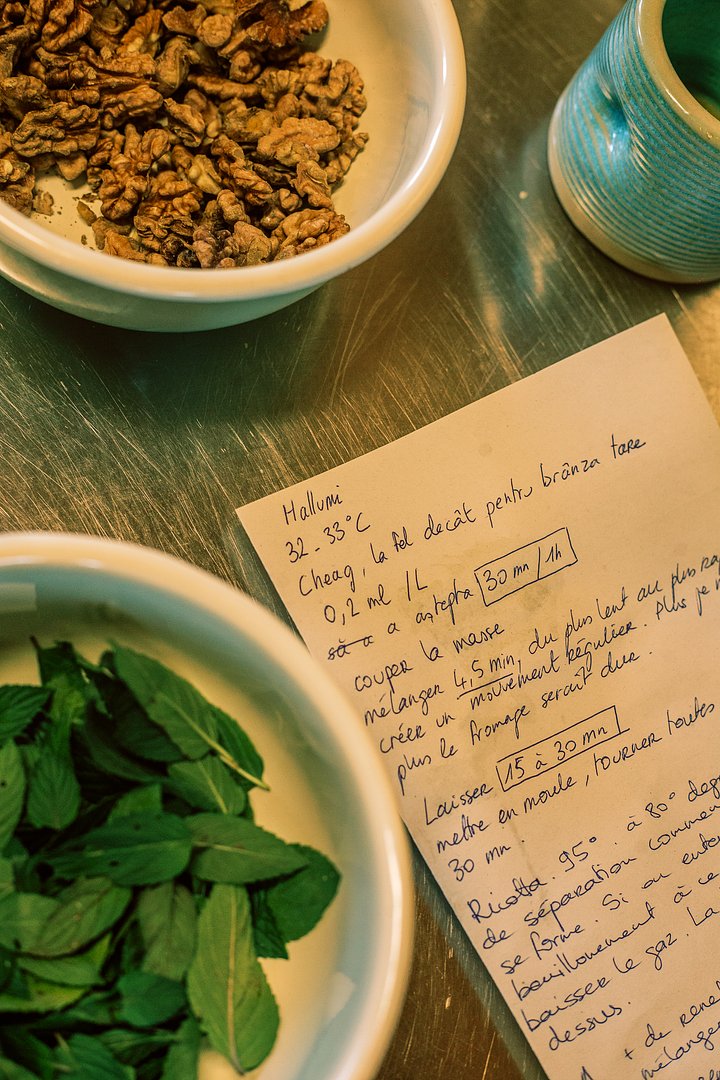 Hallumi
32 - 33°C
Cheag, la fel decât pentru brânza tare
0,2 ml /L
să a a aștepta 30 mn / 1h
couper la masse
mélanger 4,5 min, du plus lent au plus
créer un mouvement régulier. Plus je
plus le fromage serait dur.
Laisser 15 à 30 mn
mettre en moule, tourner toutes
30 mn.
Ricotta. 95° à 80°
de séparation
se forme. Si on
bouillonnement à ce
baisser le gaz. La
dessus.
+ de